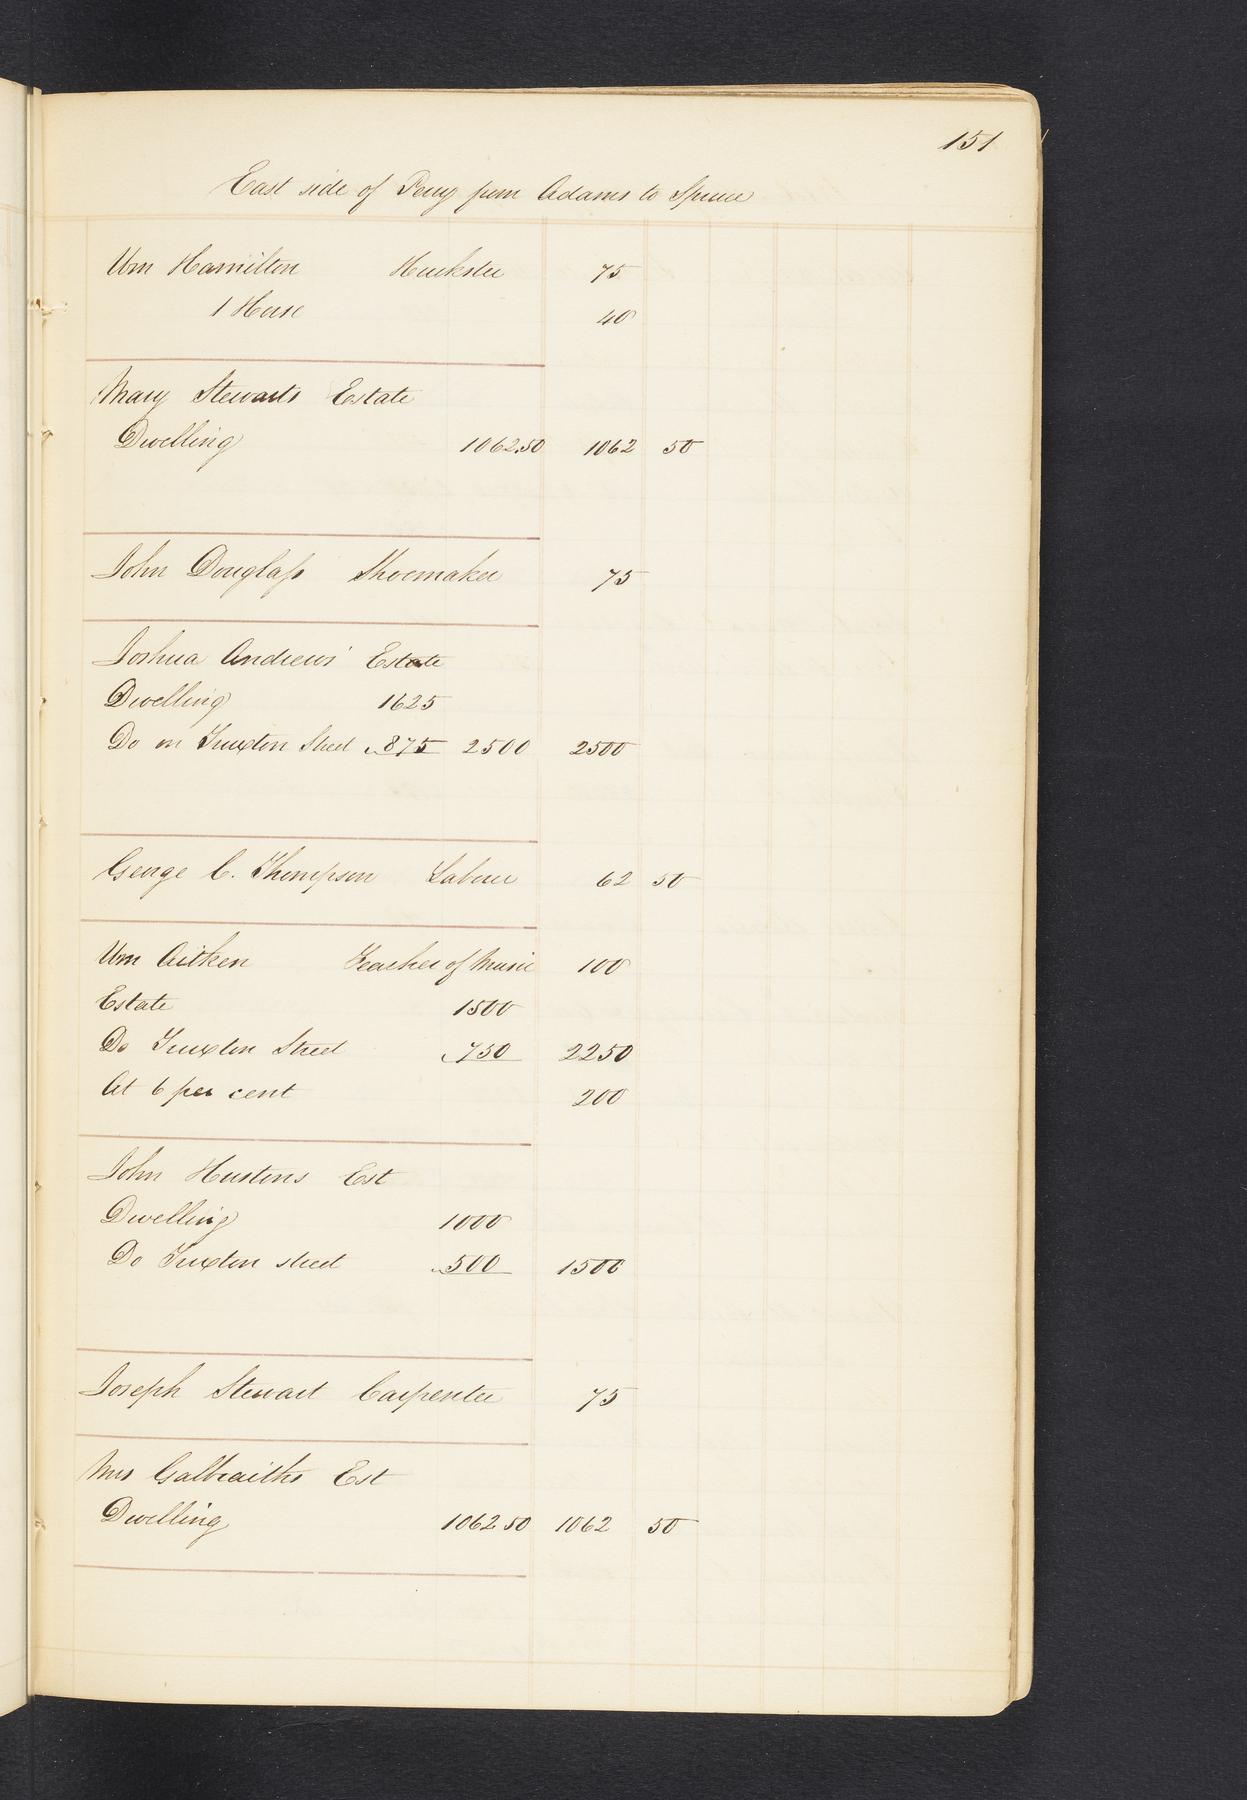 151
East side of Perry from Adams to Spruce
Wm Hamilton Huckster 75
1 Horse 40
Mary Stewarts Estate
Dwelling 1062.50 1062 50
John Douglass Shoemaker 75
Joshua Andrews' Estate
Dwelling 1625
Do on Truxton Street 875 2500 2500
George C. Thompson Labour 62 50
Wm Aitken Teacher of Music 100
Estate 1500
Do Truxton Street 750 2250
At 6 per cent 200
John Hustons Est
Dwelling 1000
Do Truxton street 500 1500
Joseph Stewart Carpenter 75
Mrs Galbraiths Est
Dwelling 1062 50 1062 50